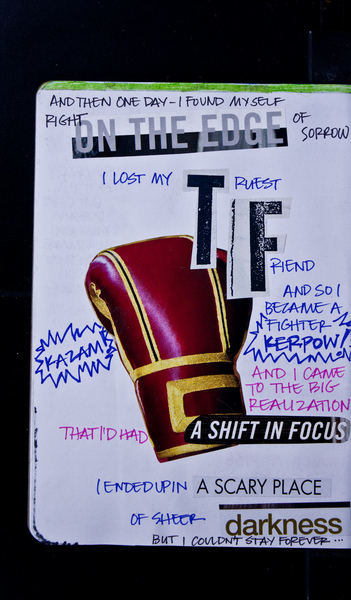 AND THEN ONE DAY - I FOUND MYSELF
RIGHT ON THE EDGE OF
SORROW
I LOST MY TRUEST
FRIEND
AND SO I
BECAME A
FIGHTER -
KERPOW!
KAZAM!
AND I CAME
TO THE BIG
REALIZATION
THAT I'D HAD A SHIFT IN FOCUS
I ENDED UP IN A SCARY PLACE
OF SHEER darkness
BUT I COULDN'T STAY FOREVER...